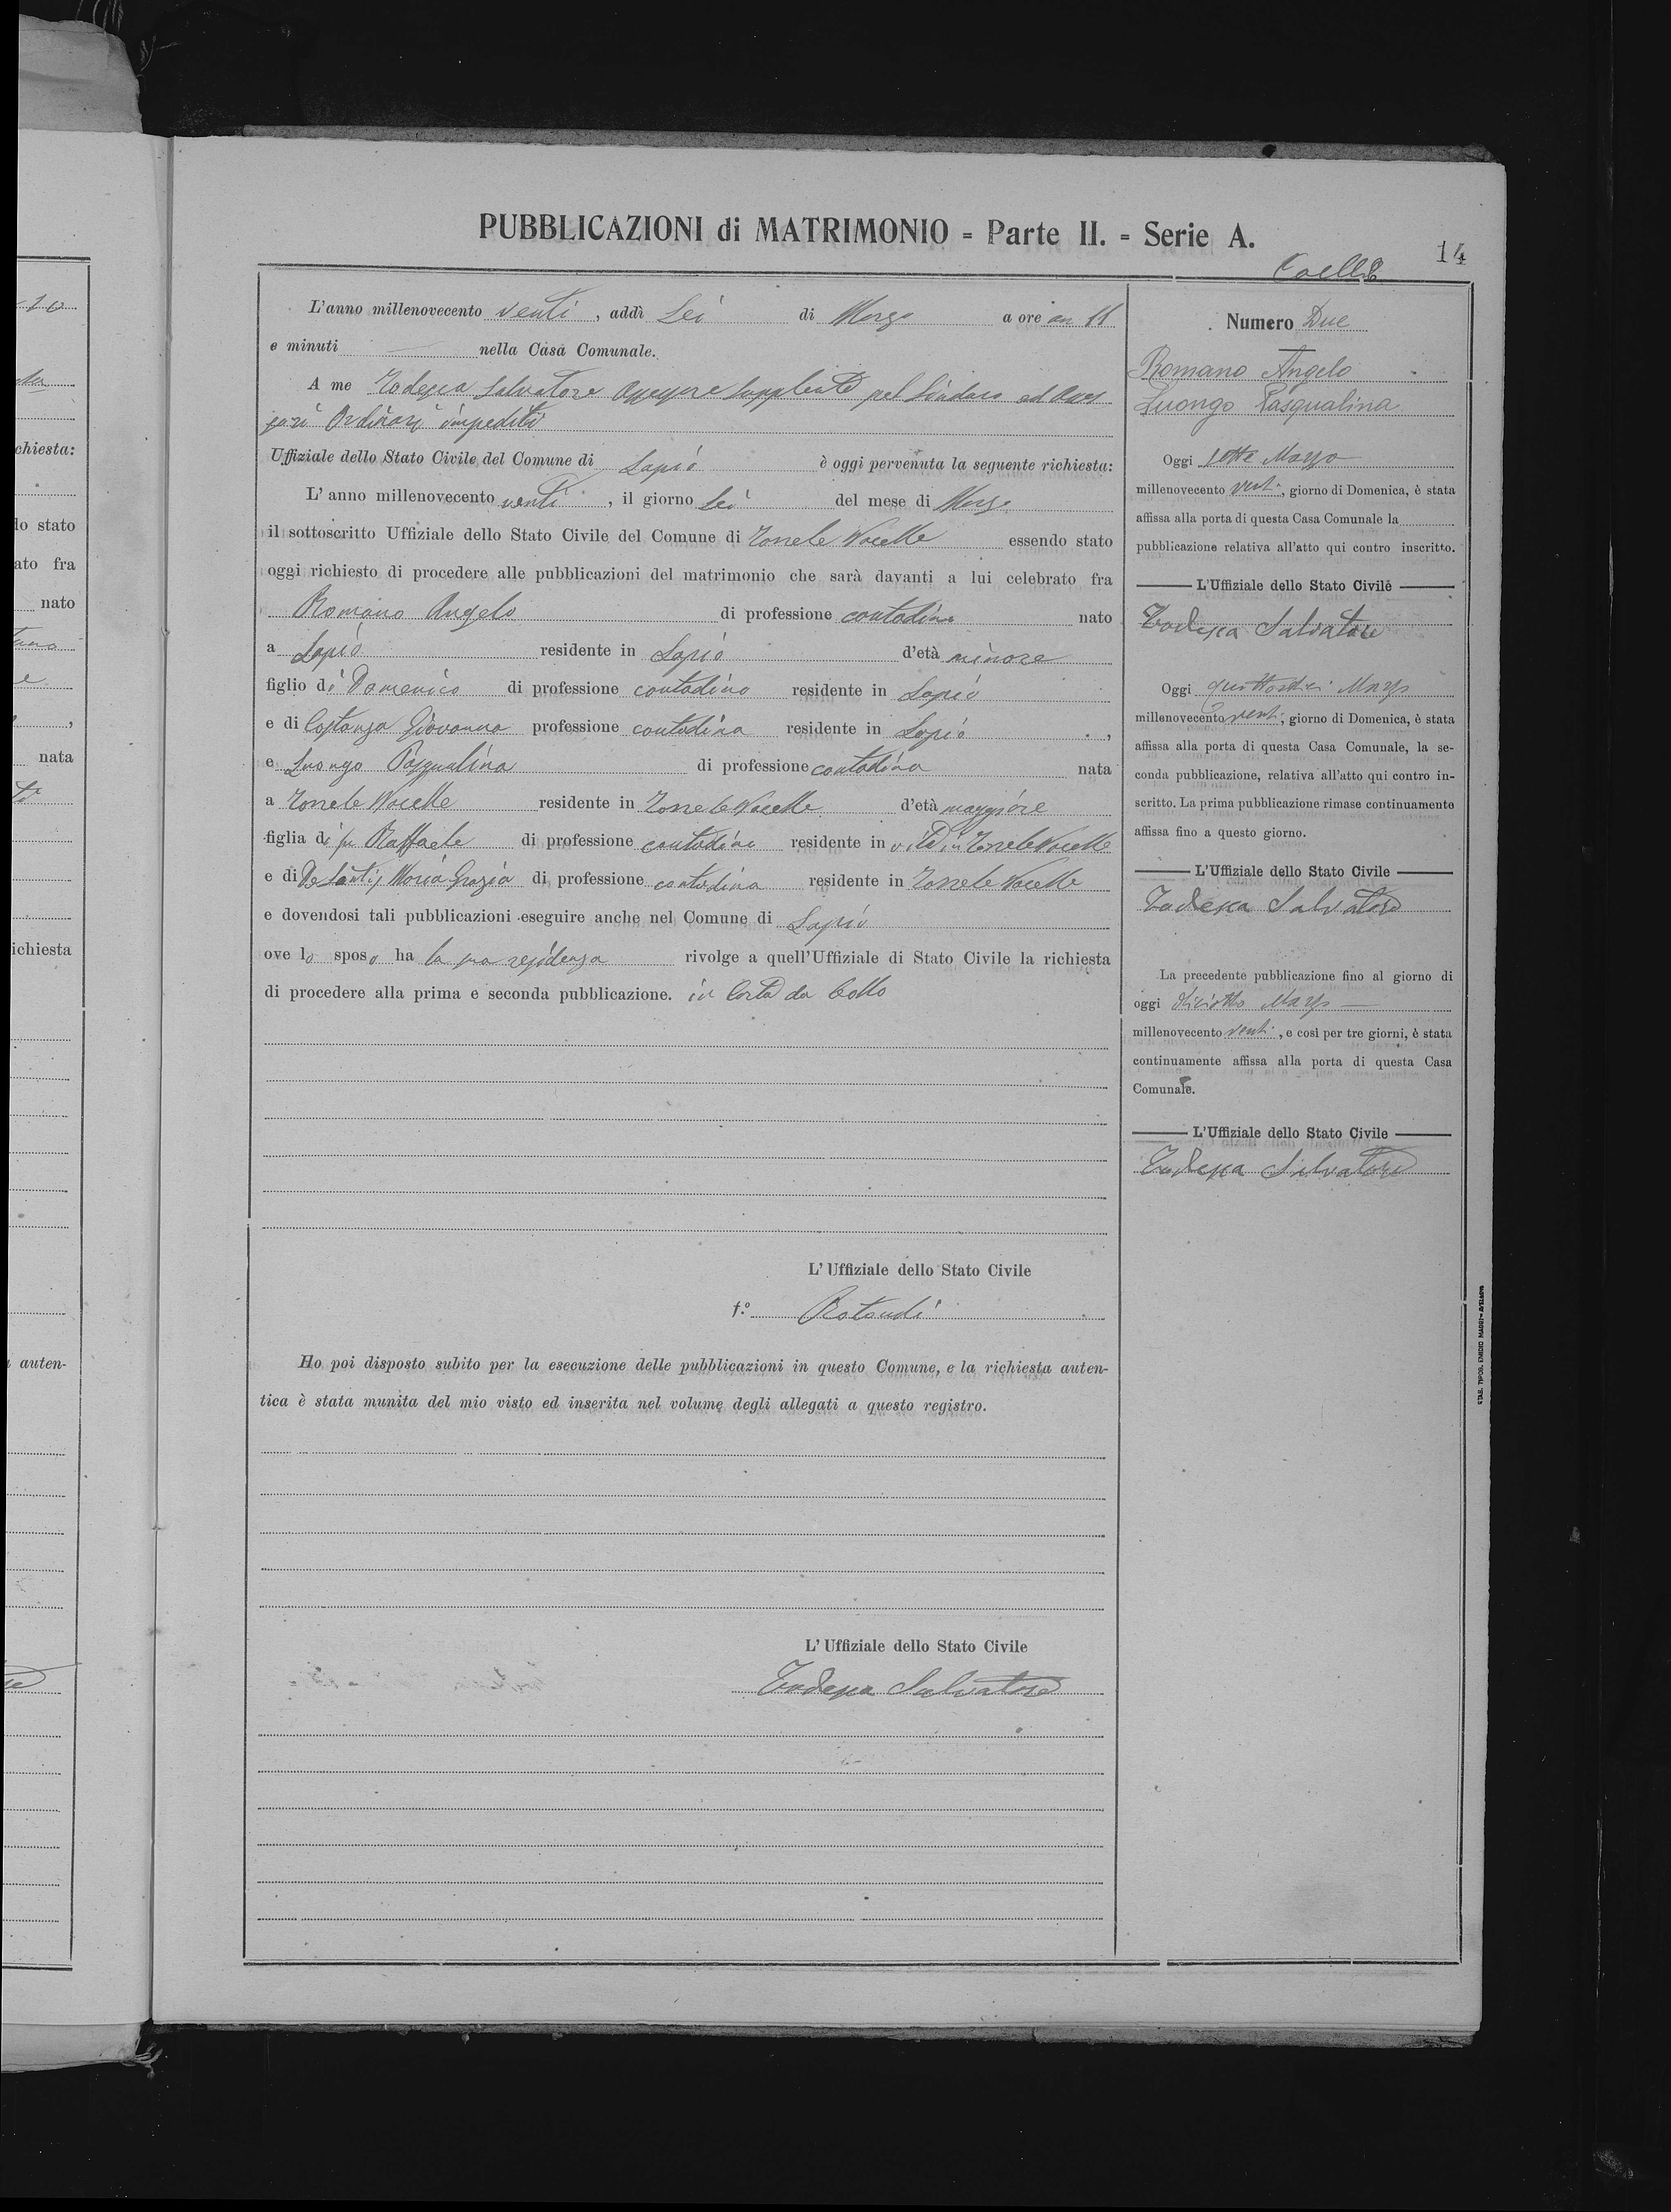 PUBBLICAZIONI di MATRIMONIO = Parte II. = Serie A.
14
L'anno millenovecento venti, addì Sei di Marzo a ore an 11
e minuti — nella Casa Comunale.
A me Todesca Salvatore Assessore Supplente pel Sindaco ed Asses
sori Ordinari impediti
Uffiziale dello Stato Civile del Comune di Lapio è oggi pervenuta la seguente richiesta:
L'anno millenovecento venti, il giorno Sei del mese di Marzo
il sottoscritto Uffiziale dello Stato Civile del Comune di Torre le Nocelle essendo stato
oggi richiesto di procedere alle pubblicazioni del matrimonio che sarà davanti a lui celebrato fra
Romano Angelo di professione contadino nato
a Lapio residente in Lapio d'età minore
figlio di Domenico di professione contadino residente in Lapio
e di Costanza Giovanna professione contadina residente in Lapio,
e Luongo Pasqualina di professione contadina nata
a Torre le Nocelle residente in Torre le Nocelle d'età maggiore
figlia di fu Raffaele di professione contadino residente in vita in Torre le Nocelle
e di De Santis Maria Grazia di professione contadina residente in Torre le Nocelle
e dovendosi tali pubblicazioni eseguire anche nel Comune di Lapio
ove lo sposo ha la sua residenza rivolge a quell'Uffiziale di Stato Civile la richiesta
di procedere alla prima e seconda pubblicazione. in Carta da bollo
L'Uffiziale dello Stato Civile
f.º Rotondi
Ho poi disposto subito per la esecuzione delle pubblicazioni in questo Comune, e la richiesta auten-
tica è stata munita del mio visto ed inserita nel volume degli allegati a questo registro.
L'Uffiziale dello Stato Civile
Todesca Salvatore
Numero Due
Romano Angelo
Luongo Pasqualina
Oggi sette Marzo
millenovecento venti, giorno di Domenica, è stata
affissa alla porta di questa Casa Comunale la
pubblicazione relativa all'atto qui contro inscritto.
L'Uffiziale dello Stato Civile
Todesca Salvatore
Oggi quattordici Marzo
millenovecento venti, giorno di Domenica, è stata
affissa alla porta di questa Casa Comunale, la se-
conda pubblicazione, relativa all'atto qui contro in-
scritto. La prima pubblicazione rimase continuamente
affissa fino a questo giorno.
L'Uffiziale dello Stato Civile
Todesca Salvatore
La precedente pubblicazione fino al giorno di
oggi diciotto Marzo —
millenovecento venti, e così per tre giorni, è stata
continuamente affissa alla porta di questa Casa
Comunale.
L'Uffiziale dello Stato Civile
Todesca Salvatore
chiesta:
lo stato
ato fra
nato
nata
ichiesta
auten-